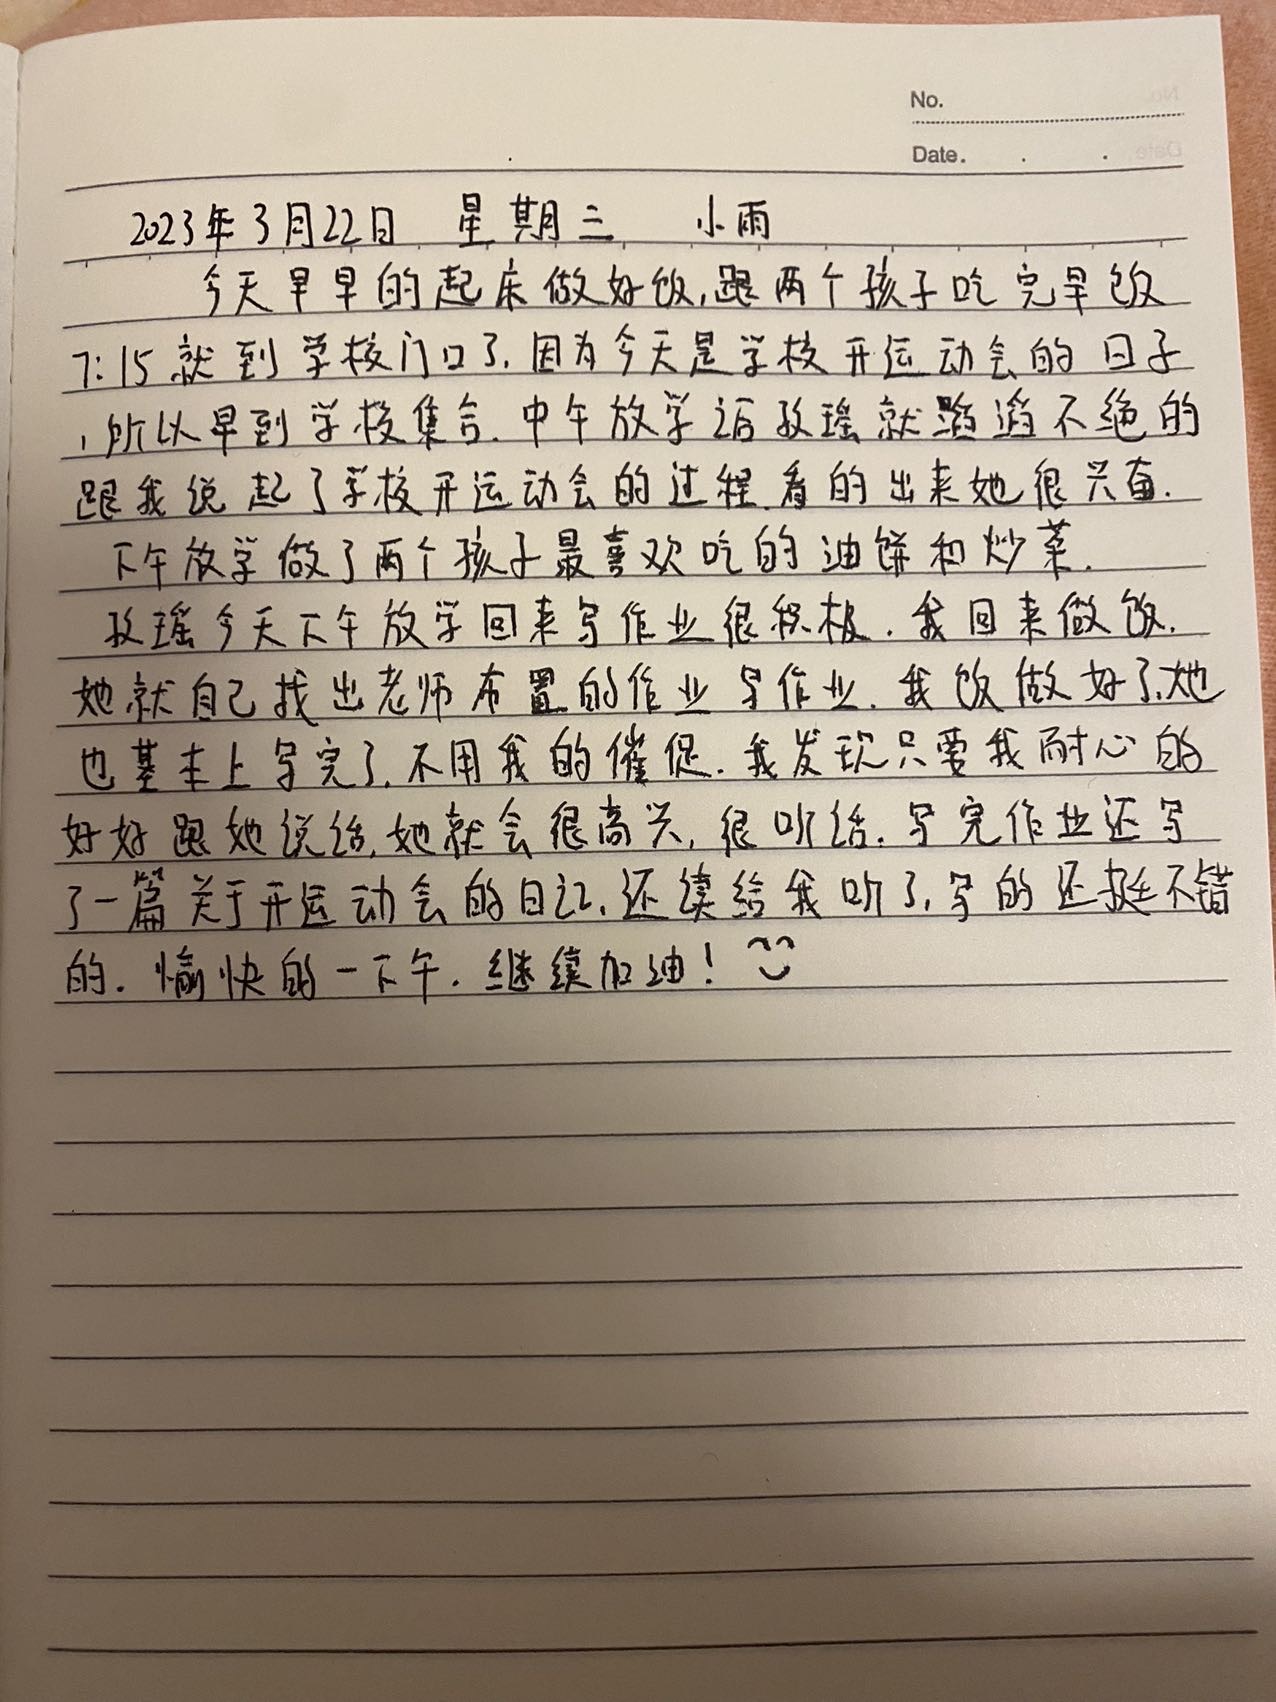 No.
Date. . .
2023年3月22日 星期三 小雨
今天早早的起床做好饭,跟两个孩子吃完早饭
7:15就到学校门口了,因为今天是学校开运动会的日子
,所以早到学校集合.中午放学后玟瑶就滔滔不绝的
跟我说起了学校开运动会的过程.看的出来她很兴奋.
下午放学做了两个孩子最喜欢吃的油饼和炒菜.
玟瑶今天下午放学回来写作业很积极.我回来做饭.
她就自己找出老师布置的作业写作业.我饭做好了,她
也基本上写完了.不用我的催促.我发现只要我耐心的
好好跟她说话,她就会很高兴,很听话.写完作业还写
了一篇关于开运动会的日记,还读给我听了,写的还挺不错
的.愉快的一下午.继续加油!